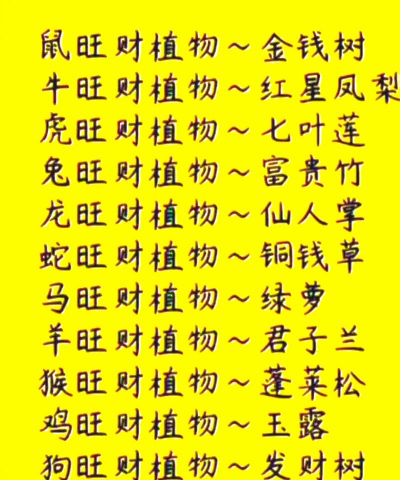 鼠旺财植物～金钱树
牛旺财植物～红星凤梨
虎旺财植物～七叶莲
兔旺财植物～富贵竹
龙旺财植物～仙人掌
蛇旺财植物～铜钱草
马旺财植物～绿萝
羊旺财植物～君子兰
猴旺财植物～蓬莱松
鸡旺财植物～玉露
狗旺财植物～发财树